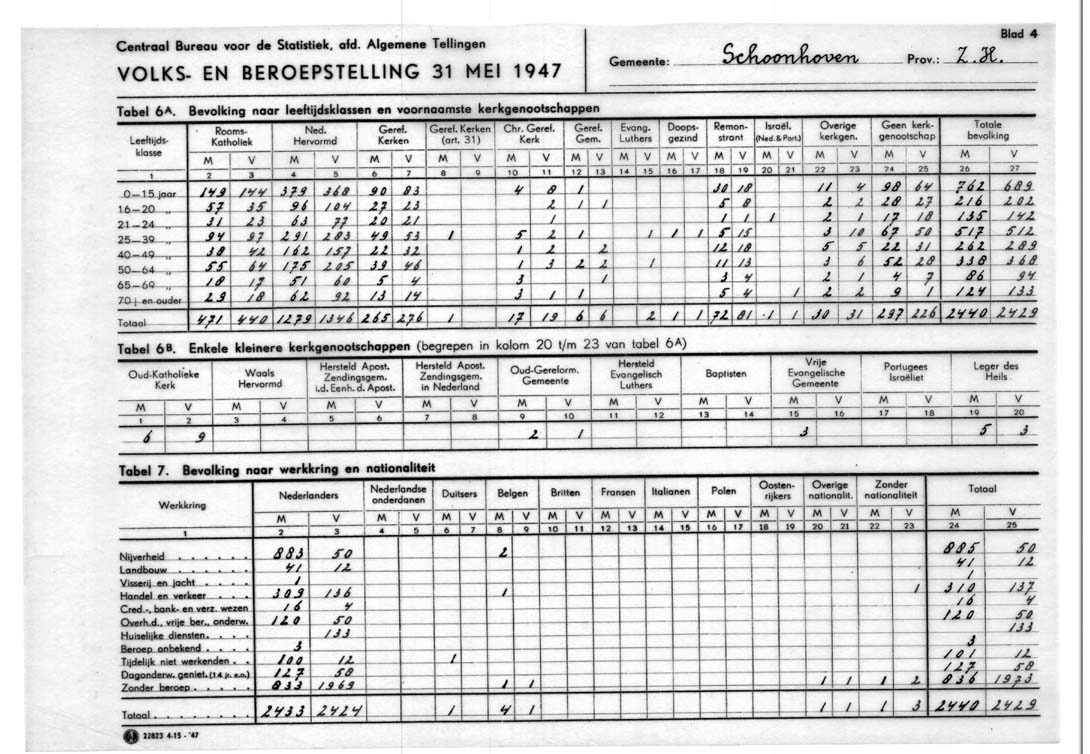 Blad 4
Centraal Bureau voor de Statistiek, afd. Algemene Tellingen
VOLKS- EN BEROEPSTELLING 31 MEI 1947
Gemeente: Schoonhoven Prov.: Z.H.
Tabel 6A. Bevolking naar leeftijdsklassen en voornaamste kerkgenootschappen
Leeftijds-klasse Rooms-Katholiek Ned. Hervormd Geref. Kerken Geref. Kerken (art. 31) Chr. Geref. Kerk Geref. Gem. Evang. Luthers Doops-gezind Remon-strant Israël. (Ned. & Port.) Overige kerkgen. Geen kerk-genootschap Totale bevolking
M V M V M V M V M V M V M V M V M V M V M V M V M V
1 2 3 4 5 6 7 8 9 10 11 12 13 14 15 16 17 18 19 20 21 22 23 24 25 26 27
0-15 jaar 149 144 379 368 90 83 4 8 1 30 18 11 4 98 64 762 689
16-20 „ 57 35 96 104 27 23 2 1 1 5 8 2 2 28 27 216 202
21-24 „ 31 23 63 77 20 21 1 1 1 1 2 1 17 18 135 142
25-39 „ 94 97 291 283 49 53 1 5 2 1 1 1 1 5 15 3 10 67 50 517 512
40-49 „ 38 42 162 157 22 32 1 2 2 12 18 5 5 22 31 262 289
50-64 „ 55 64 175 205 39 46 1 3 2 2 1 11 13 3 6 52 28 338 368
65-69 „ 18 17 51 60 5 4 3 1 3 4 2 1 4 7 86 94
70 j en ouder 29 18 62 92 13 14 3 1 1 5 4 1 2 2 9 1 124 133
Totaal 471 440 1279 1346 265 276 1 17 19 6 6 2 1 1 72 81 1 1 30 31 297 226 2440 2429
Tabel 6B. Enkele kleinere kerkgenootschappen (begrepen in kolom 20 t/m 23 van tabel 6A)
Oud-Katholieke Kerk Waals Hervormd Hersteld Apost. Zendingsgem. i.d. Eenh. d. Apost. Hersteld Apost. Zendingsgem. in Nederland Oud-Gereform. Gemeente Hersteld Evangelisch Luthers Baptisten Vrije Evangelische Gemeente Portugees Israëliet Leger des Heils
M V M V M V M V M V M V M V M V M V M V
1 2 3 4 5 6 7 8 9 10 11 12 13 14 15 16 17 18 19 20
6 9 2 1 3 5 3
Tabel 7. Bevolking naar werkkring en nationaliteit
Werkkring Nederlanders Nederlandse onderdanen Duitsers Belgen Britten Fransen Italianen Polen Oosten-rijkers Overige nationalit. Zonder nationaliteit Totaal
M V M V M V M V M V M V M V M V M V M V M V M V
1 2 3 4 5 6 7 8 9 10 11 12 13 14 15 16 17 18 19 20 21 22 23 24 25
Nijverheid . . . . . . 883 50 2 885 50
Landbouw . . . . . . 41 12 41 12
Visserij en jacht . . . . 1 1
Handel en verkeer . . . . 309 136 1 1 310 137
Cred.-, bank- en verz. wezen 16 4 16 4
Overh.d., vrije ber., onderw. 120 50 120 50
Huiselijke diensten. . . . 133 133
Beroep onbekend . . . . 3 3
Tijdelijk niet werkenden . . 100 12 1 101 12
Dagonderw. geniet. (14 jr. e.o.) 127 58 127 58
Zonder beroep . . . . . 833 1969 1 1 1 1 1 2 836 1973
Totaal . . . . . . . . 2433 2424 1 4 1 1 1 1 3 2440 2429
22823 4-15 - '47